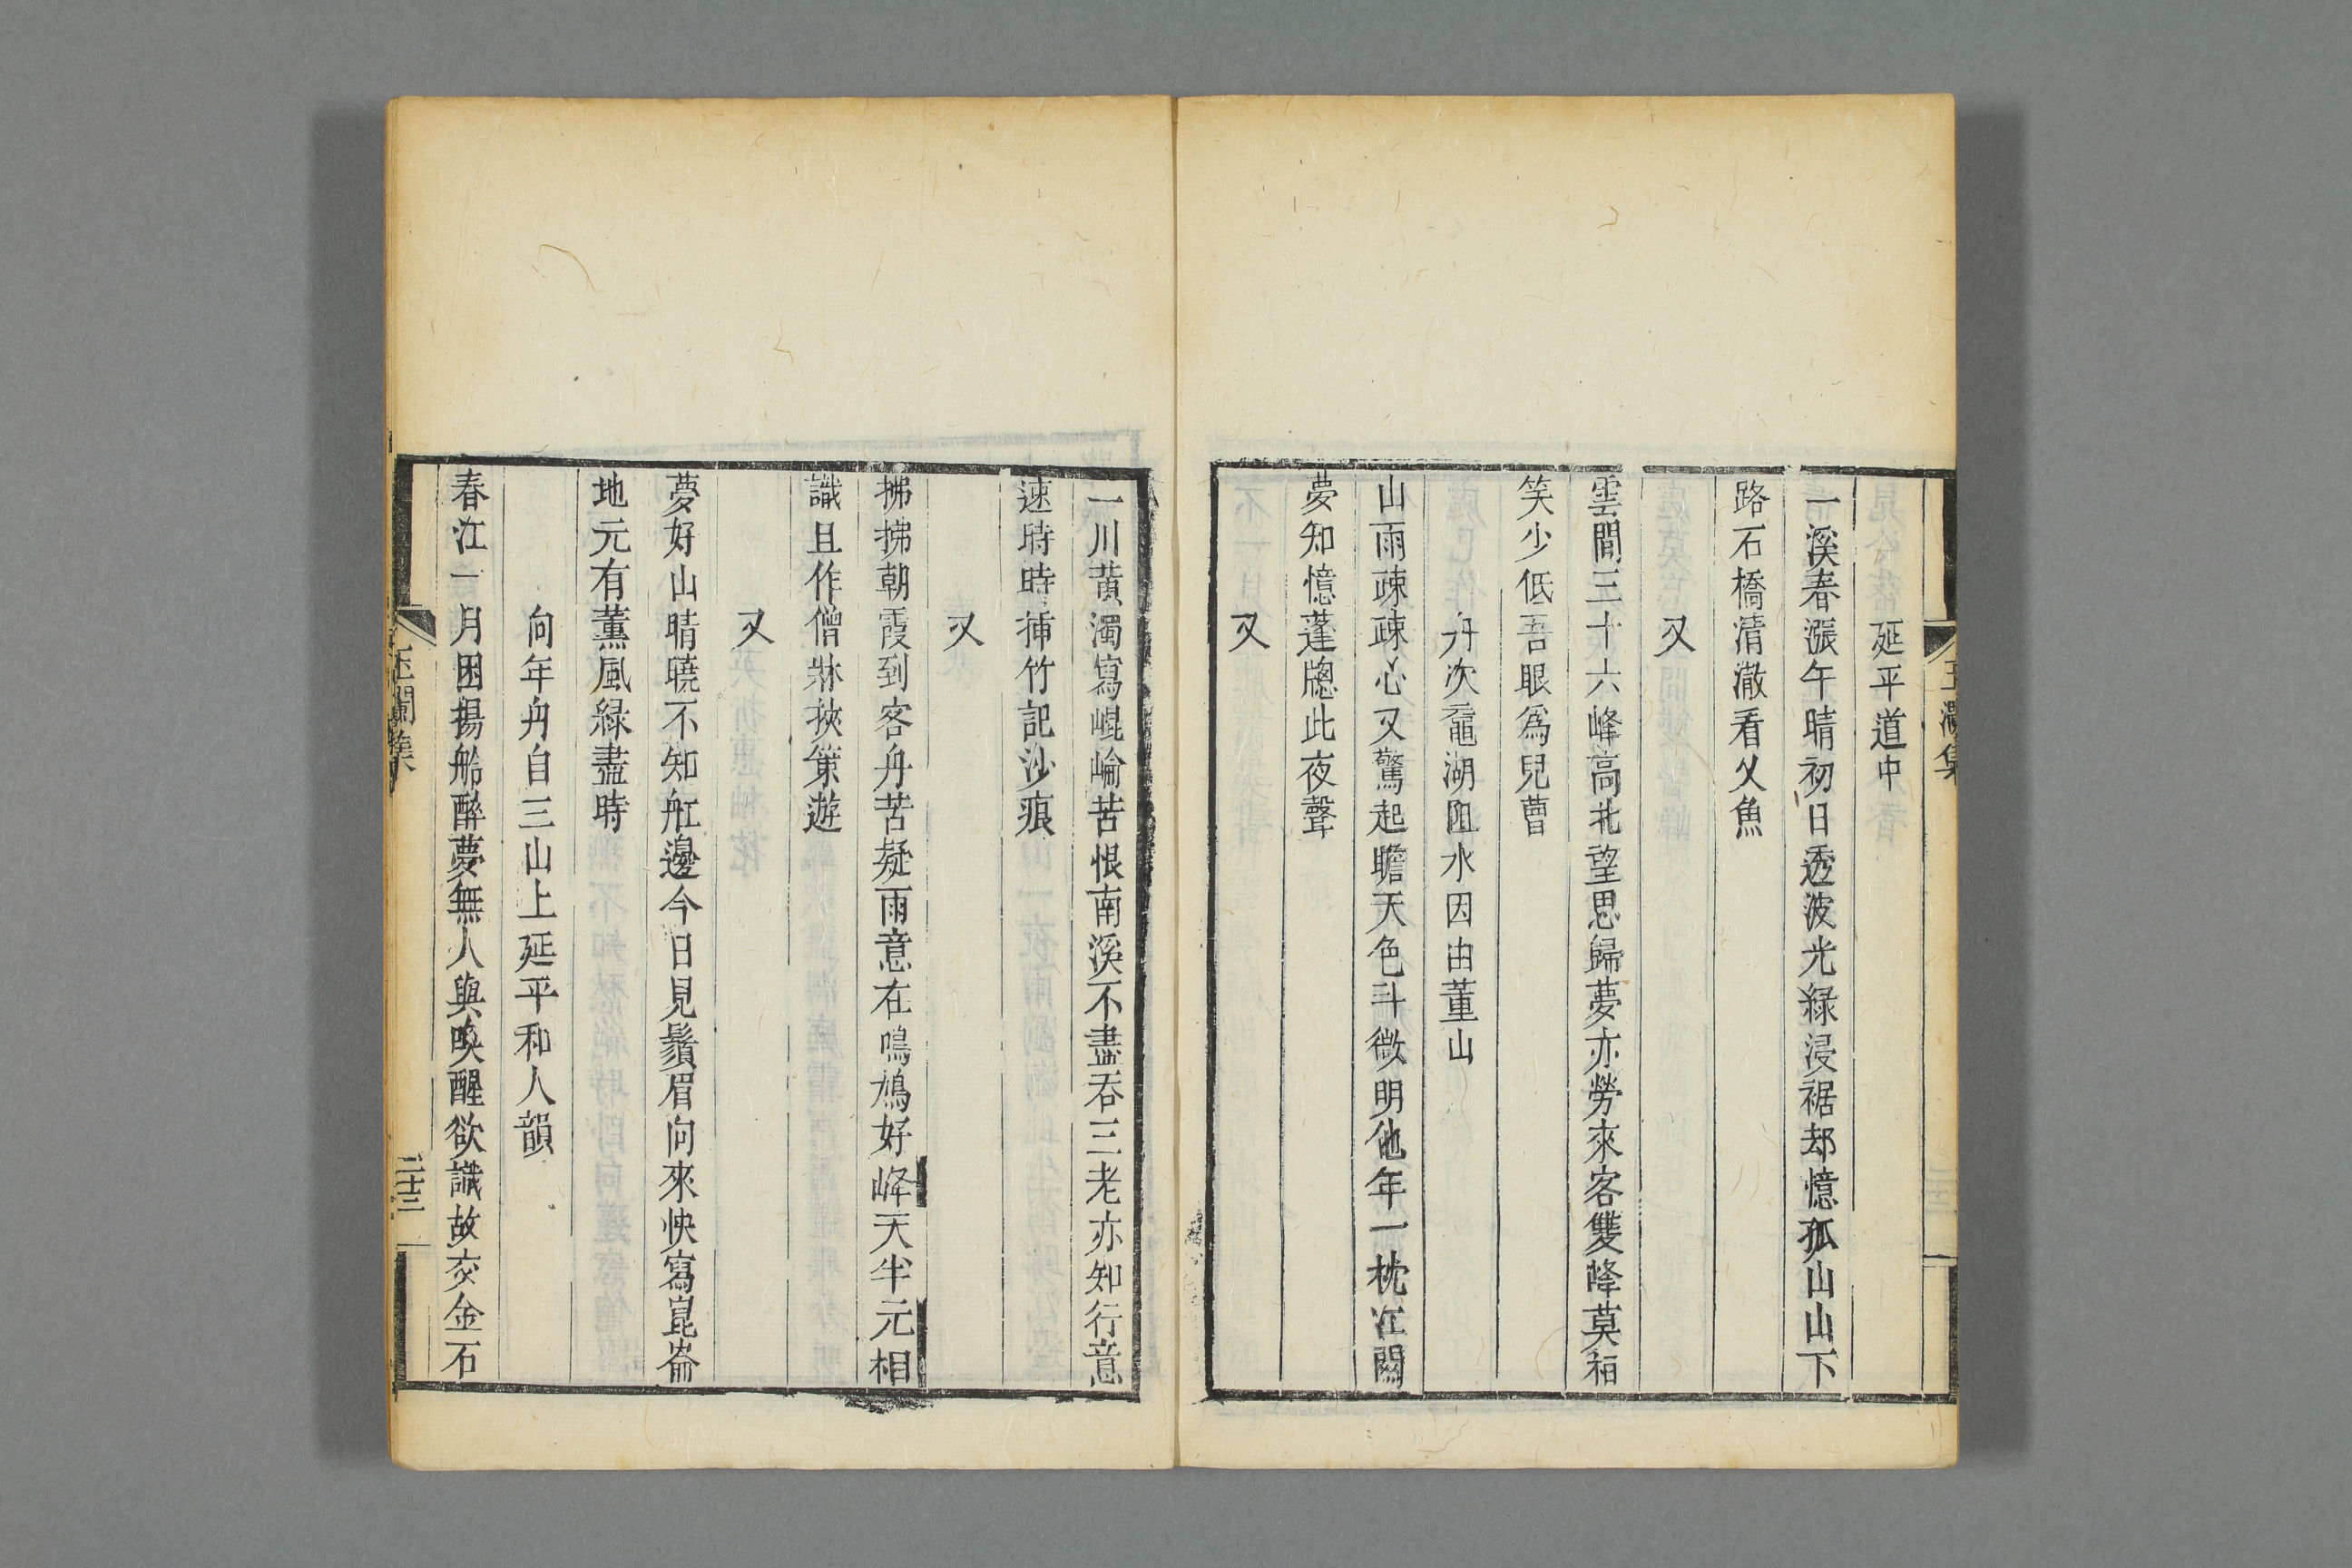 延平道中
一溪春漲午晴初日透波光綠浸裾却憶孤山山下
路石橋清澈看乂魚
又
雲間三十六峰高北望思歸夢亦勞來客雙峰莫相
笑少低吾眼為兒曹
舟次黿湖阻水因由董山
山雨疎疎心又驚起瞻天色斗微明他年一枕江閣
夢知憶蓬牕此夜聲
又
一川黃濁寫崐崘苦恨南溪不盡吞三老亦知行意
速時時揷竹記沙痕
又
拂拂朝霞到客舟苦疑雨意在鳴鳩好峰天半元相
識且作僧牀挾策遊
又
夢好山晴曉不知舡邊今日見鬚眉向來怏寫崑崙
地元有薰風綠盡時
向年舟自三山上延平和人韻
春江一月困揚船醉夢無人與喚醒欲識故交金石
玉瀾集
二十三